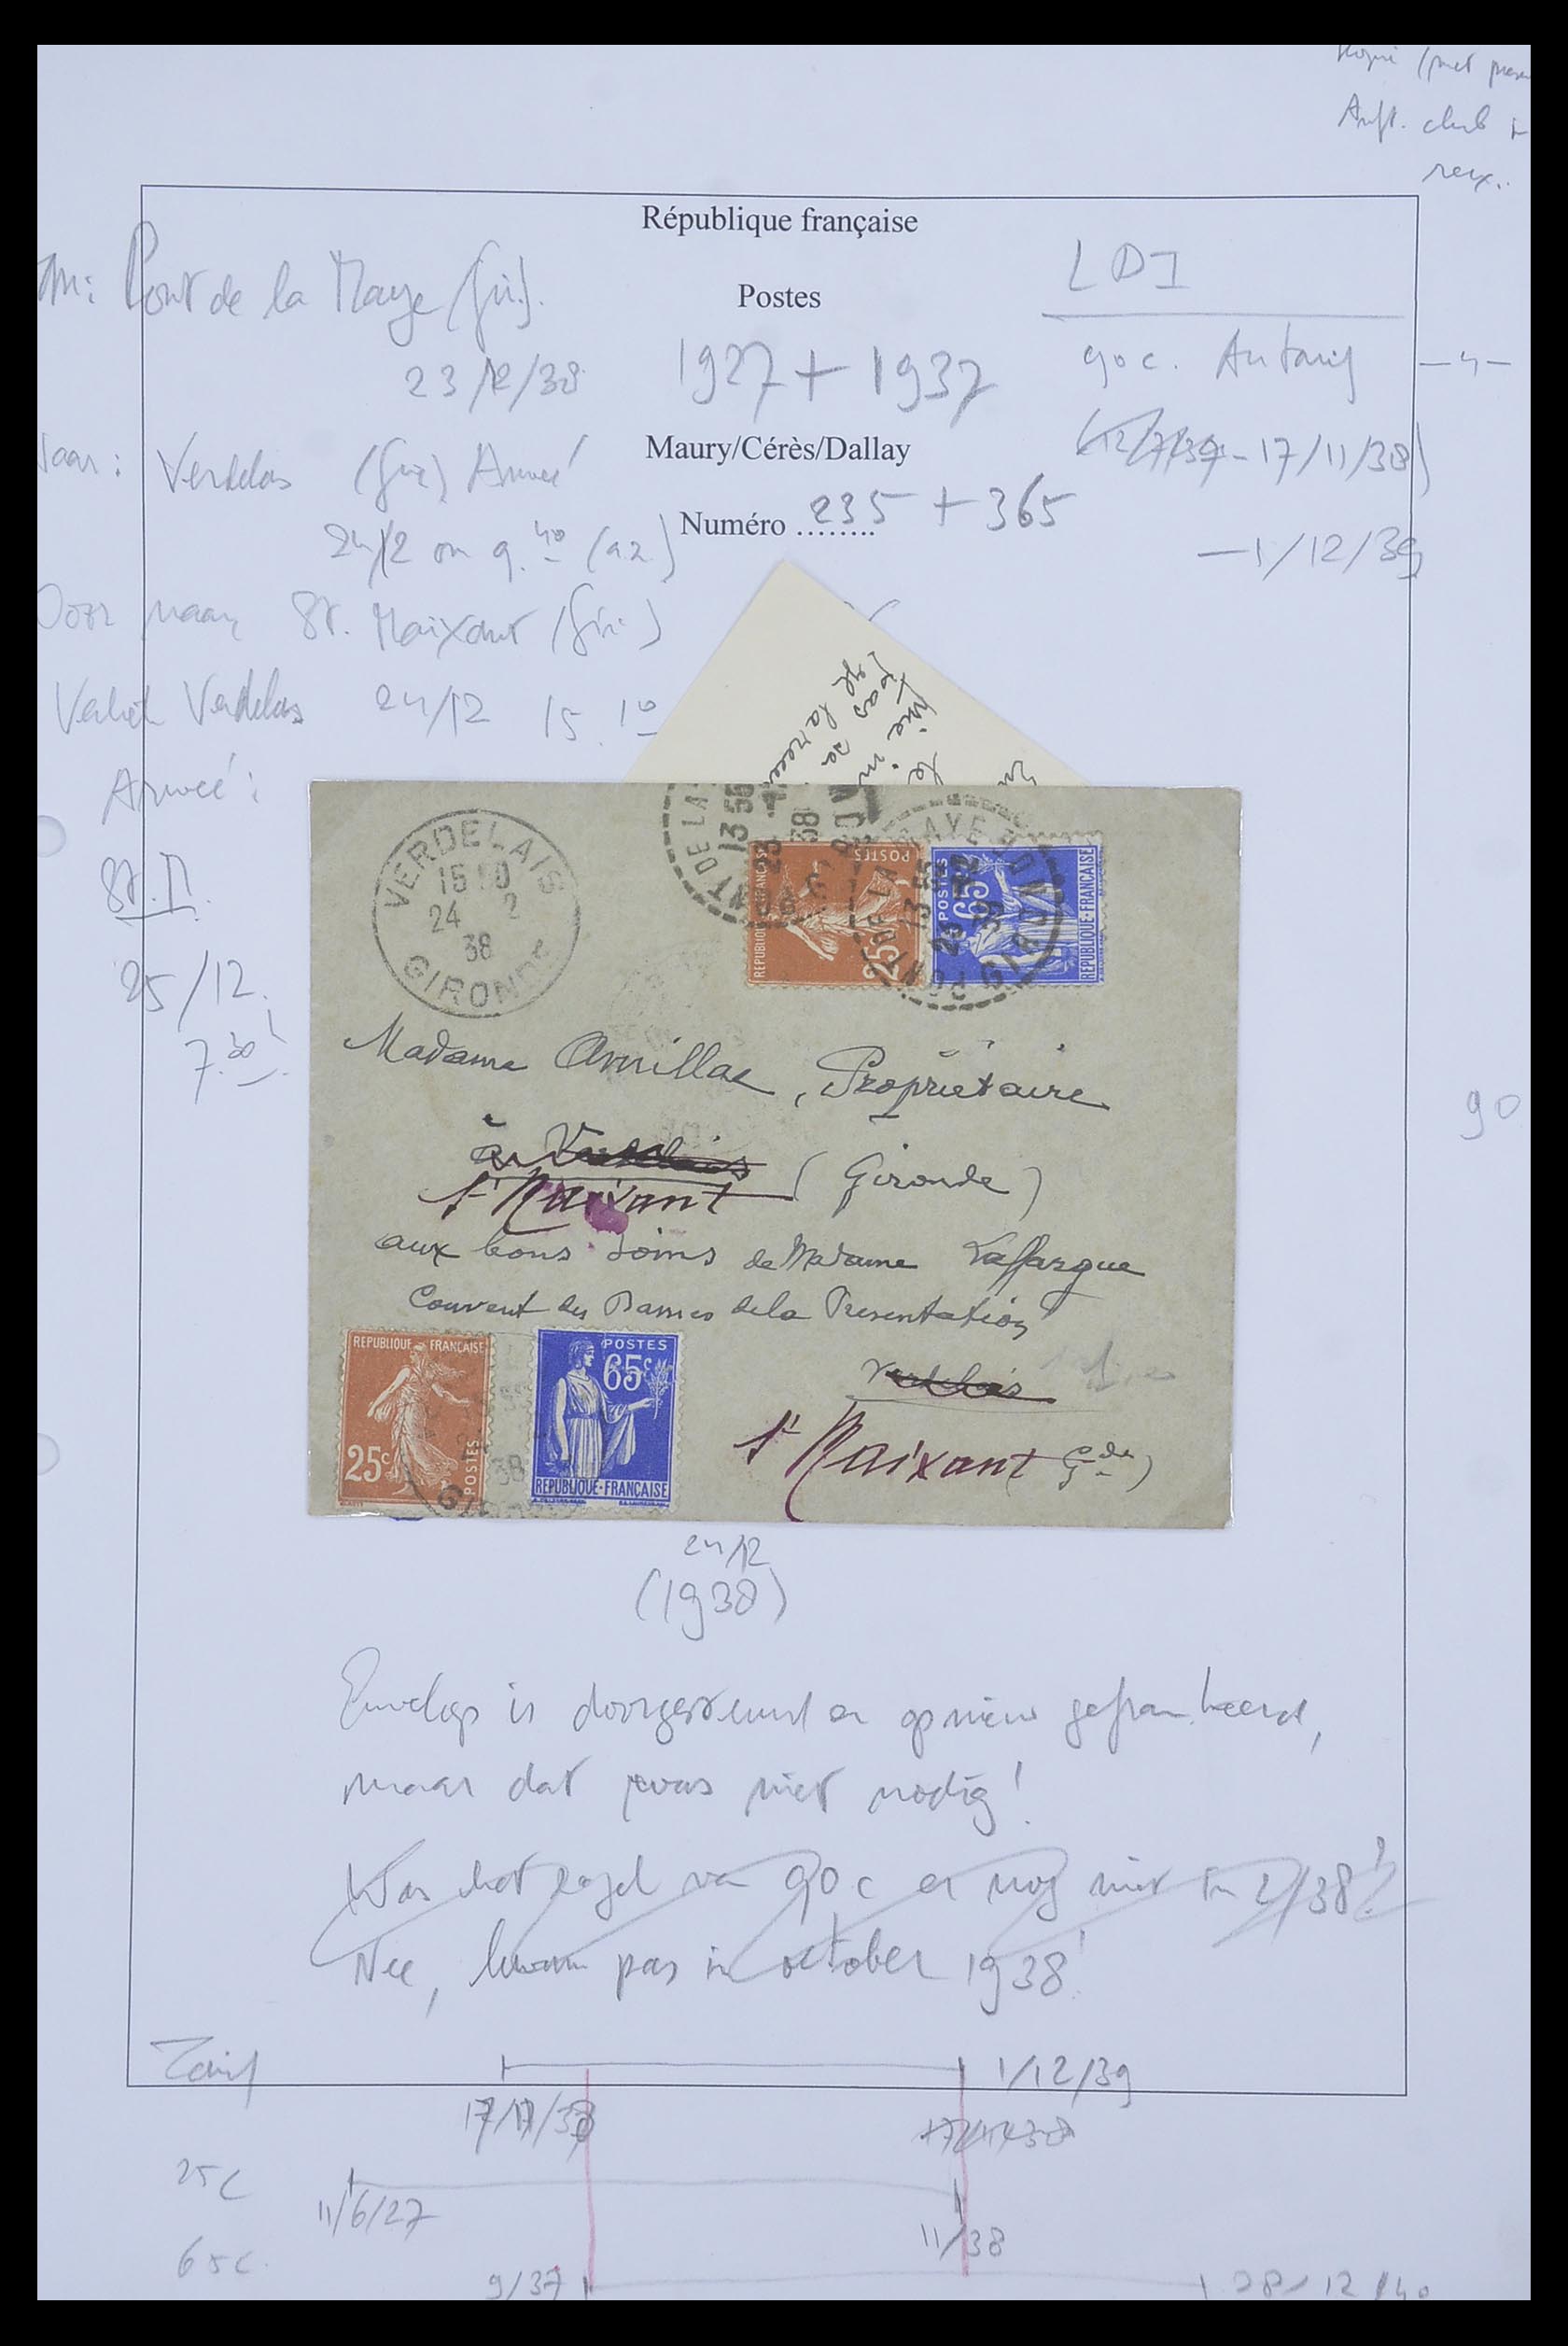 Anft. club
République française
Postes
LDI
Pont de la Maye (Gir.)
23/12/38
1927 + 1937
90 c.
Maury/Cérès/Dallay
(12/7/37 - 17/11/38)
Verdelais (Gir) Arrivé
Numéro ........ 235 + 365
24/12 om 9.40 (a2)
- 1/12/39
Door naar St. Maixant (Gir.)
Verdelais 24/12 15.10
Arrivé:
St. M.
25/12.
7.30!
90
VERDELAIS
15 10
24 2
38
GIRONDE
NT DE LA
13 55
23
38
PONT DE LA MAYE
13 55
23
GIRONDE
RÉPUBLIQUE FRANÇAISE
POSTES
25c
POSTES
65c
RÉPUBLIQUE-FRANÇAISE
Madame, Propriétaire
à Verdelais (Gironde)
St Maixant
aux bons soins de Madame Laffargue
Couvent des Dames de la Présentation
Verdelais
St Maixant Gde)
RÉPUBLIQUE FRANÇAISE
25c
POSTES
38
POSTES
65c
RÉPUBLIQUE-FRANÇAISE
24/12
(1938)
Envelop is doorgestuurd en opnieuw gefrankeerd,
maar dat was niet nodig!
Was het zegel van 90 c er nog niet in 2/38?
Nee, kwam pas in october 1938!
Tarief
1/12/39
17/11/38
25c
11/6/27
11/38
65c
9/37
28/12/40